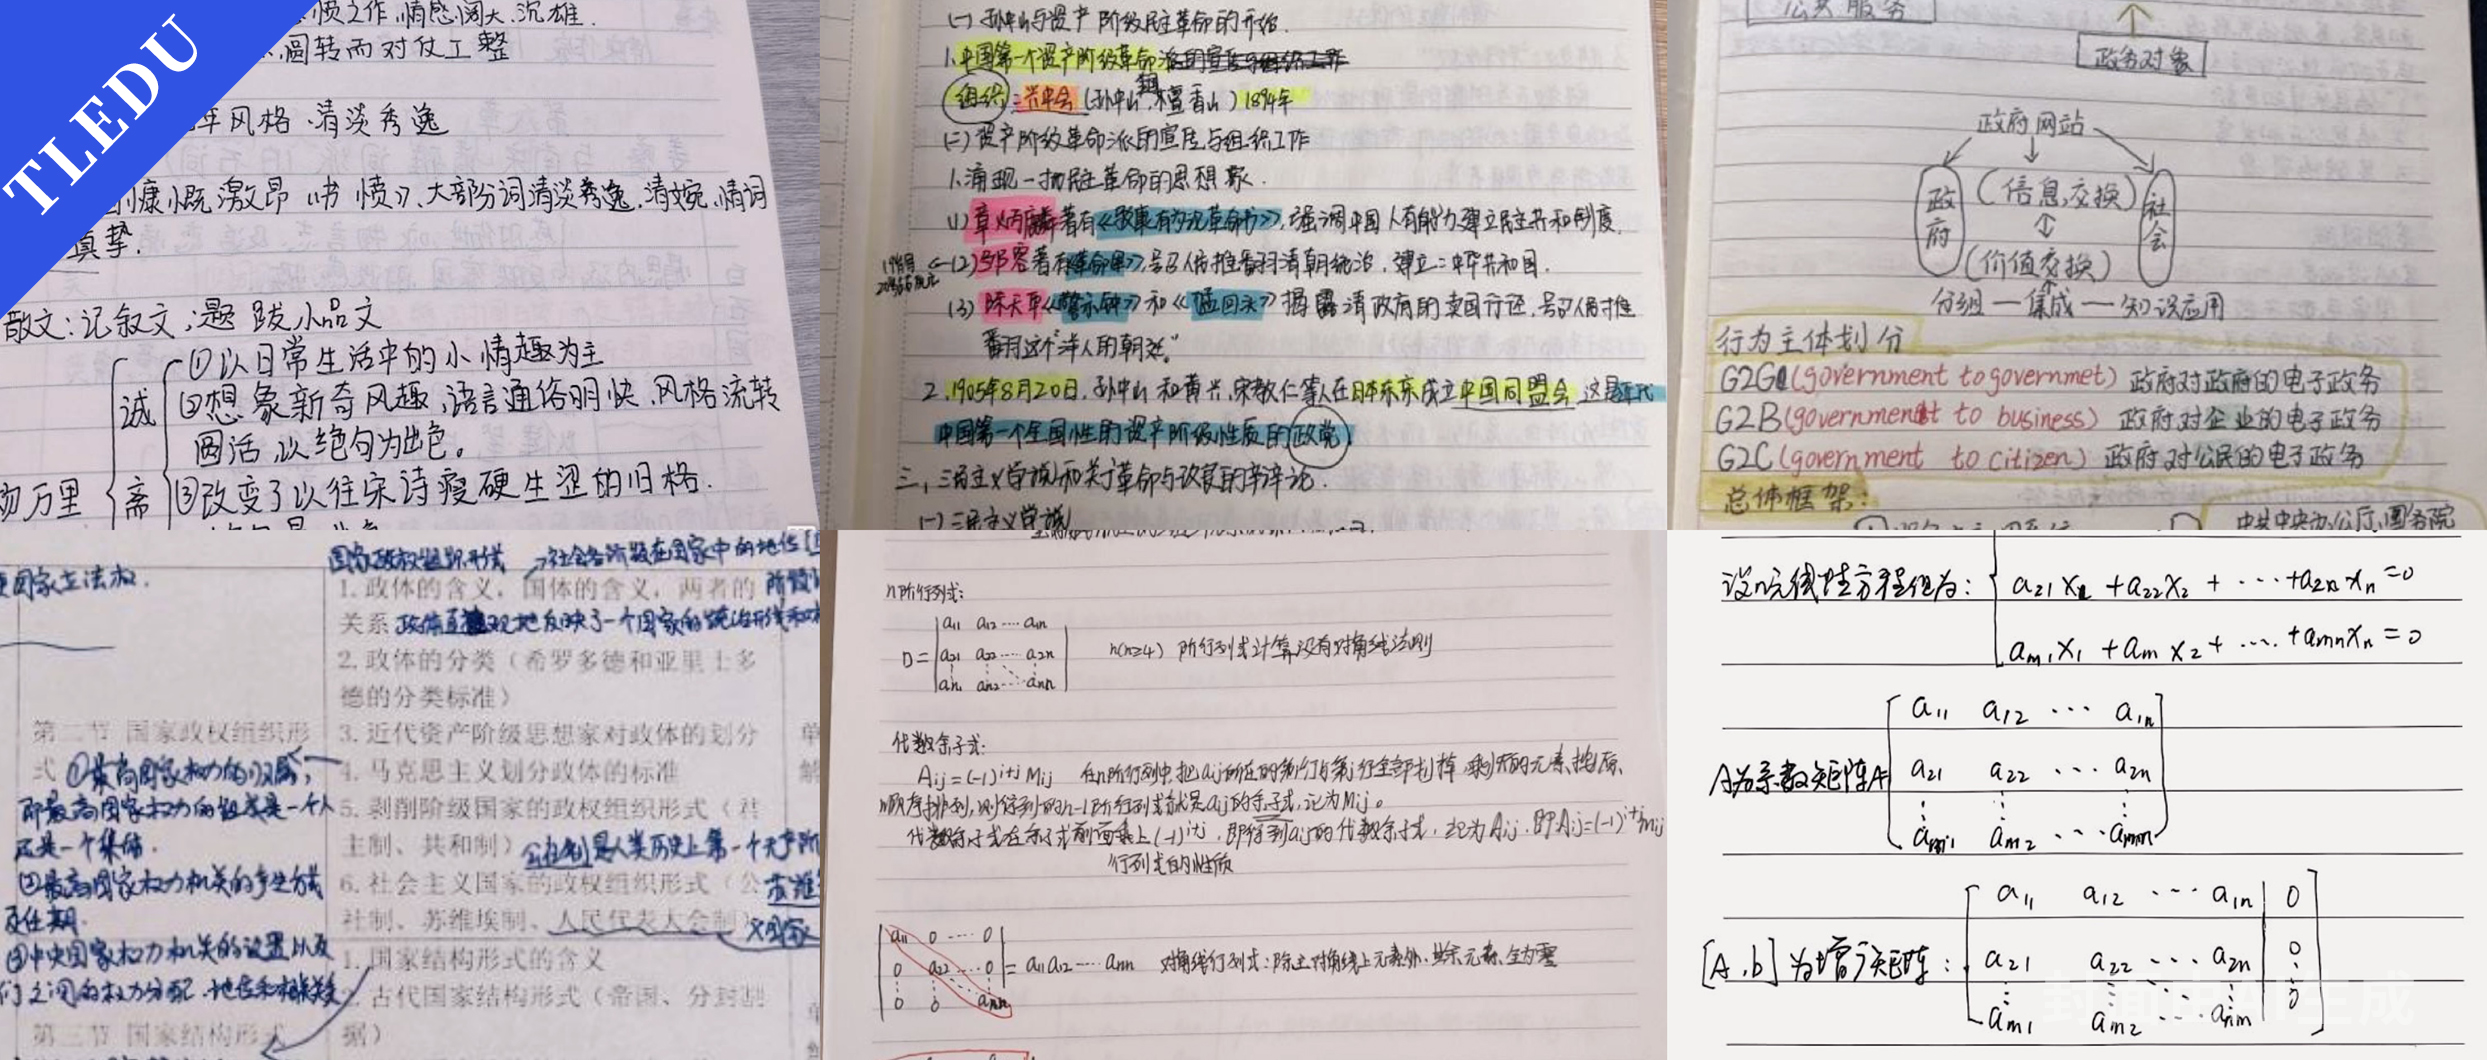 TLEDU
愤之作,情感阔大.沉雄.
圆转而对仗工整
风格.清淡秀逸
慷慨激昂《书愤》,大部分词清淡秀逸.清婉.情词
真挚.
散文:记叙文;题跋小品文
诚
斋
万里
①以日常生活中的小情趣为主
②想象新奇风趣,语言通俗明快.风格流转
圆活,以绝句为出色。
③改变了以往宋诗瘦硬生涩的旧格.
(一)孙中山与资产阶级民主革命的开始.
1.中国第一个资产阶级革命
组织:兴中会(孙中山,檀香山)1894年
(二)资产阶级革命派的宣传与组织工作
1.涌现一批民主革命的思想家.
(1)章炳麟著有《驳康有为论革命书》,强调中国人有能力建立民主共和制度.
(2)邹容著有《革命军》,号召人们推翻清朝统治,建立中华共和国.
(3)陈天华《警示钟》和《猛回头》揭露清政府的卖国行径,号召人们推
翻这个“洋人的朝廷.”
2.1905年8月20日,孙中山和黄兴,宋教仁等人在日本东京成立中国同盟会 这是近代
中国第一个全国性的资产阶级性质的政党
三,三民主义学说和关于革命与改良的辩论.
(一)三民主义学说
公共服务
政务对象
政府网站
政府
(信息交换)
社会
(价值交换)
分组一集成一知识应用
行为主体划分
G2G(government to governmet)政府对政府的电子政务
G2B(government to business)政府对企业的电子政务
G2C(government to citizen)政府对公民的电子政务
总体框架:
中共中央办公厅,国务院
国家政权组织形式 →社会各阶级在国家中的地位
国家立法权.
1. 政体的含义,国体的含义,两者的
关系 政体直观地反映了一个国家的统治形式
2. 政体的分类(希罗多德和亚里士多
德的分类标准)
第二节 国家政权组织形
式
3. 近代资产阶级思想家对政体的划分
4. 马克思主义划分政体的标准
5. 剥削阶级国家的政权组织形式(君
主制、共和制)
6. 社会主义国家的政权组织形式(公
社制、苏维埃制、人民代表大会制)
①最高国家权力的归属,
即最高国家权力的组成是一个人
还是一个集体.
②最高国家权力机关的产生方式
及任期.
③中央国家权力机关的设置以及
们之间的权力分配.地位和相关关
1. 国家结构形式的含义
2. 古代国家结构形式(帝国、分封割
据)
第三节 国家结构形式
n阶行列式:
D=
a11 a12 ···· a1n
a21 a22 ···· a2n
an1 an2 ···· ann
n(n≥4)阶行列式计算没有对角线法则
代数余子式:
Aij=(-1)^i+j Mij 在n阶行列中,把aij所在的第i行与第j行全部划掉,剩下的元素,按原
顺序排列,则得到的n-1阶行列式就是aij的余子式,记为Mij。
代数余子式在余子式前面乘上(-1)^i+j,即得到aij的代数余子式,记为Aij.即Aij=(-1)^i+j mij
行列式的性质
a11 0 ···· 0
0 a22 ···· 0
0 0 ann
= a11a12 ···· ann 对角线行列式:除主对角线上元素外,其余元素全为零
设n元线性方程组为:
a21x1 + a22x2 + ····· + a2nxn = 0
am1x1 + am x2 + ···· + amnxn = 0
A为系数矩阵A
a11 a12 ··· a1n
a21 a22 ··· a2n
am1 am2 ··· amn
[A,b]为增广矩阵:
a11 a12 ··· a1n 0
a21 a22 ··· a2n 0
am1 am2 ··· anm 0
封面由AI生成